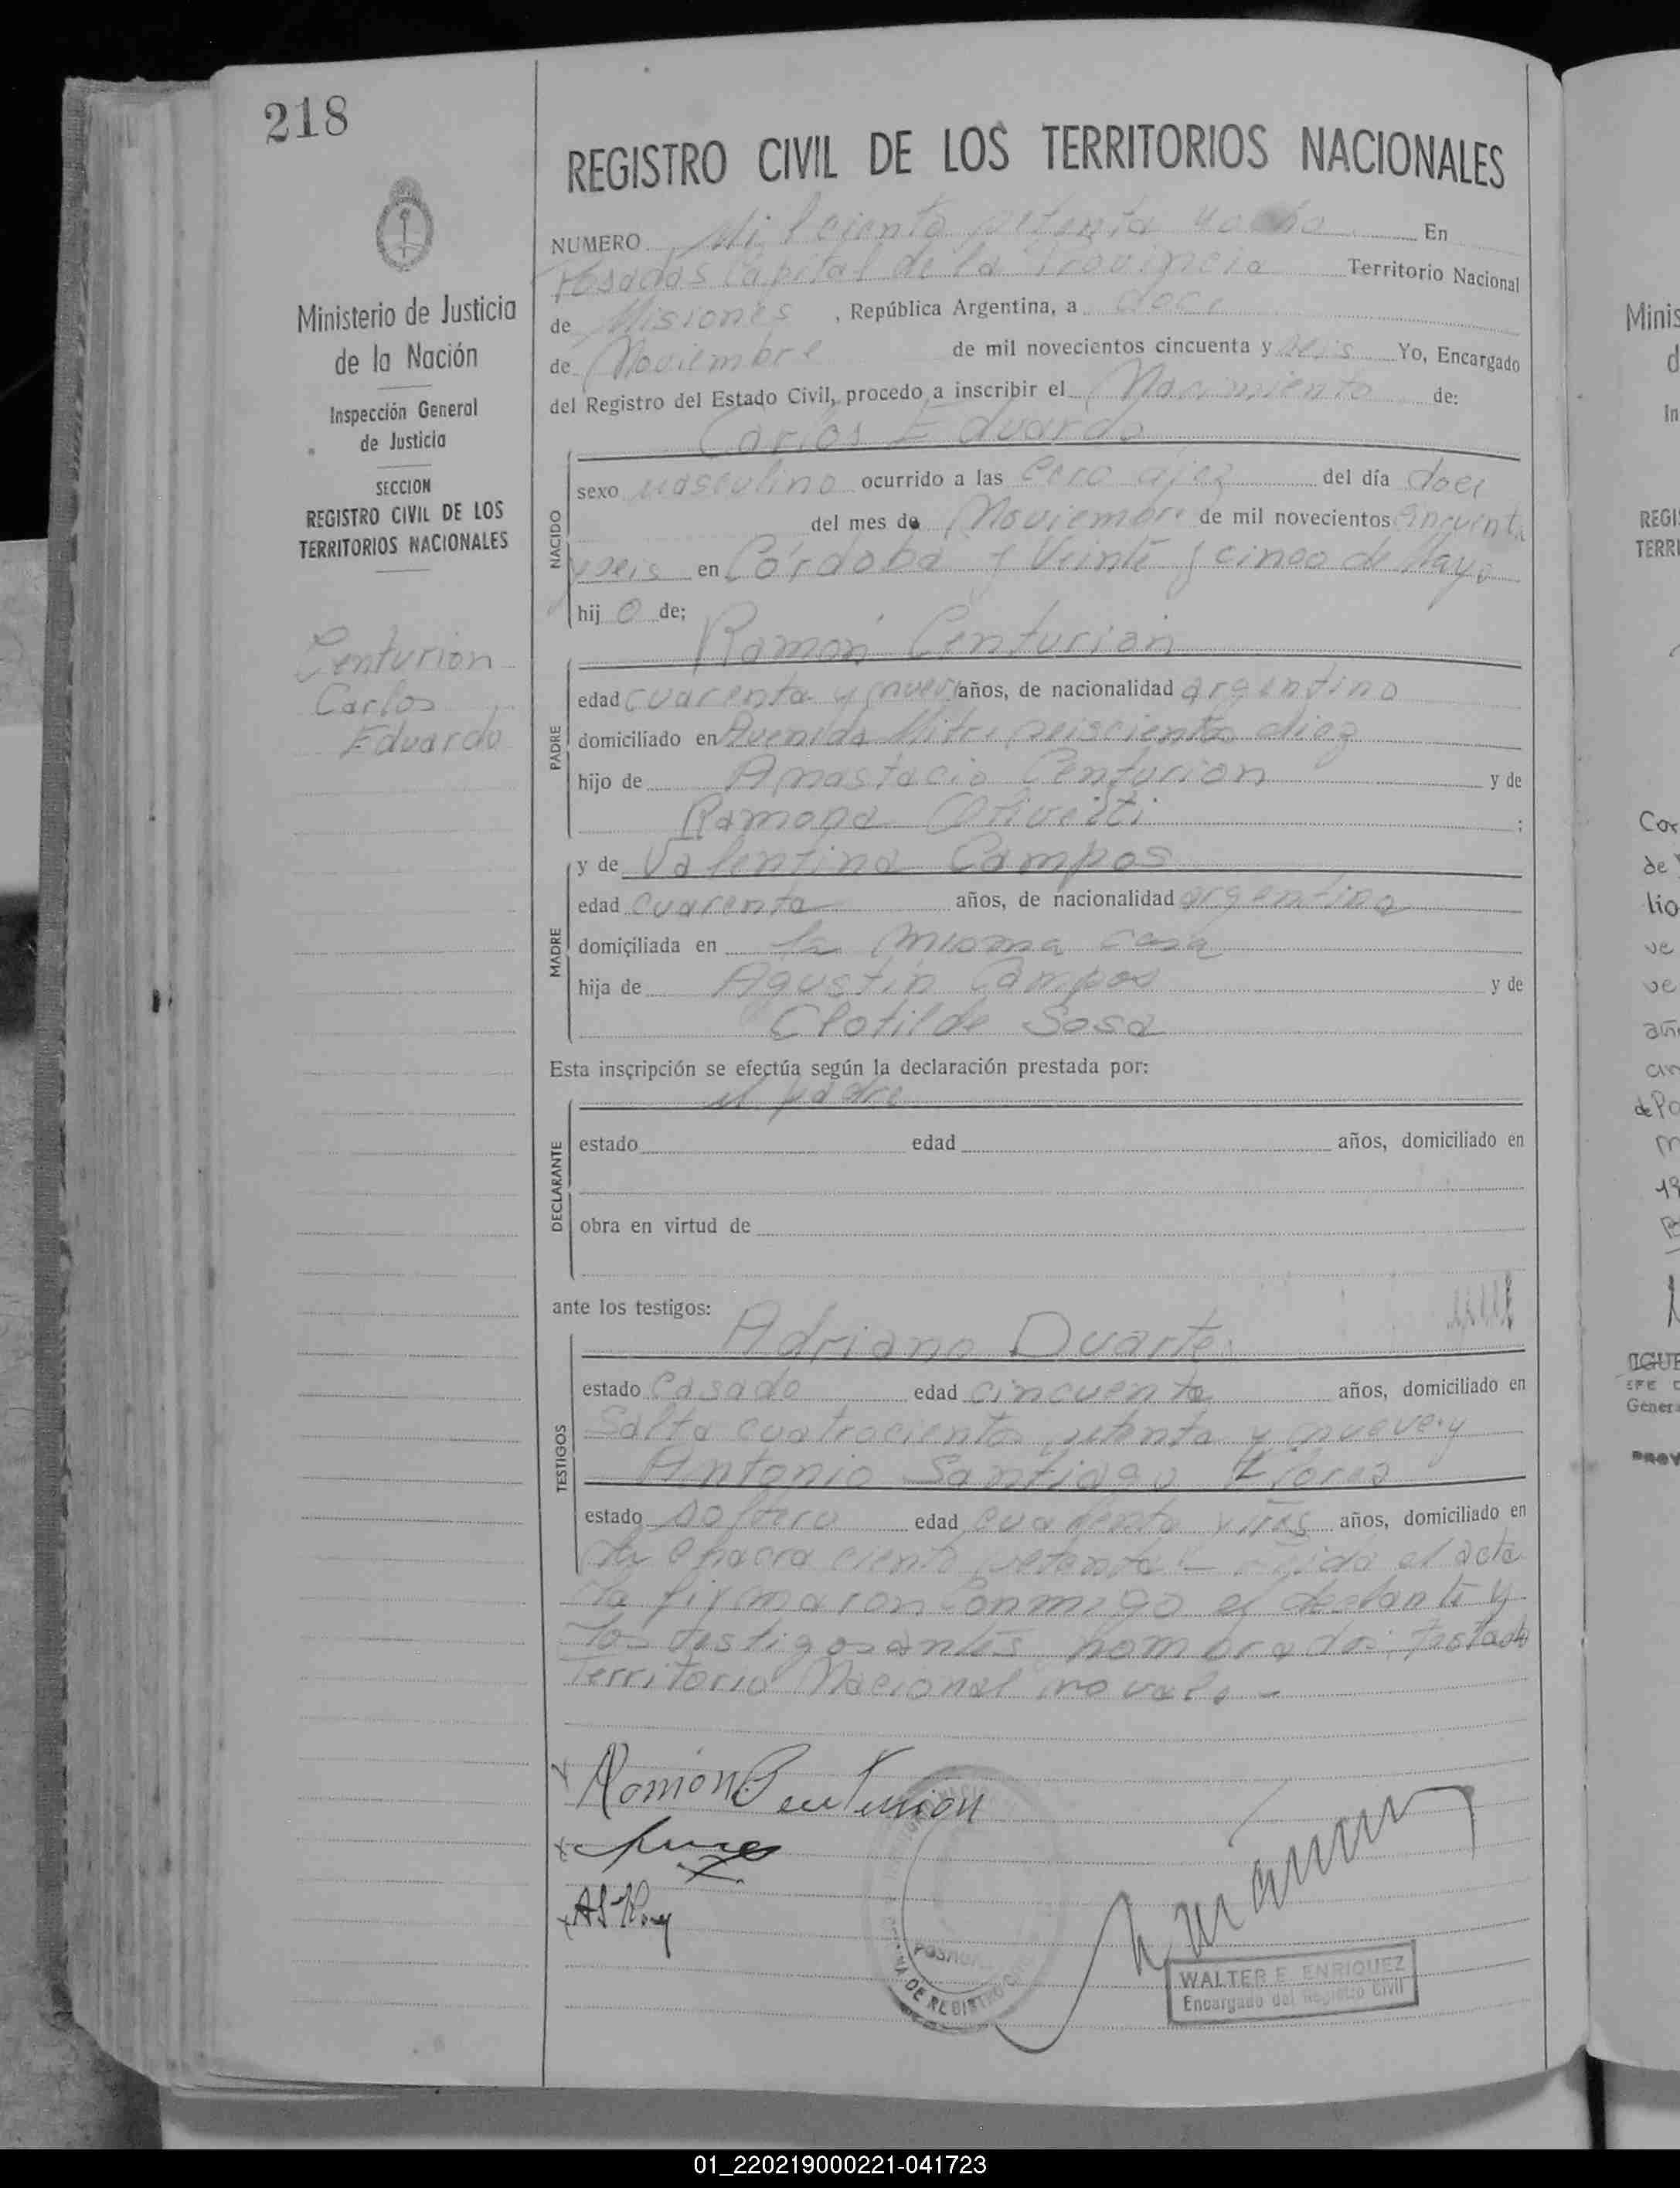 218
REGISTRO CIVIL DE LOS TERRITORIOS NACIONALES
Ministerio de Justicia
de la Nación
Inspección General
de Justicia
SECCION
REGISTRO CIVIL DE LOS
TERRITORIOS NACIONALES
Centurion
Carlos
Eduardo
NUMERO Mil ciento setenta y ocho En
Posadas Capital de la Provincia Territorio Nacional
de Misiones , República Argentina, a doce
de Noviembre de mil novecientos cincuenta y seis Yo, Encargado
del Registro del Estado Civil, procedo a inscribir el Nacimiento de:
Carlos Eduardo
NACIDO
sexo masculino ocurrido a las cero diez del día doce
del mes de Noviembre de mil novecientos cincuenta
y seis en Córdoba y Veinte y cinco de Mayo
hij o de;
Ramón Centurión
PADRE
edad cuarenta y nueve años, de nacionalidad argentino
domiciliado en Avenida Mitre seiscientos diez
hijo de Anastacio Centurion y de
Ramona ;
MADRE
y de Valentina Campos
edad cuarenta años, de nacionalidad argentina
domiciliada en la misma casa
hija de Agustin Campos y de
Clotilde Sosa
Esta inscripción se efectúa según la declaración prestada por:
el padre
DECLARANTE
estado edad años, domiciliado en
obra en virtud de
ante los testigos:
Adriano Duarte
TESTIGOS
estado casado edad cincuenta años, domiciliado en
Salta cuatrocientos setenta y nueve y
Antonio Santiago
estado soltero edad cuarenta y tres años, domiciliado en
la chacra ciento setenta - el acta
la firmaron conmigo el y
los testigos antes nombrados: testado
Territorio Nacional no vale -
Ramón Centurion
POSADAS
DE REGISTRO CIVIL
WALTER E. ENRIQUEZ
Encargado del Registro Civil
01_220219000221-041723